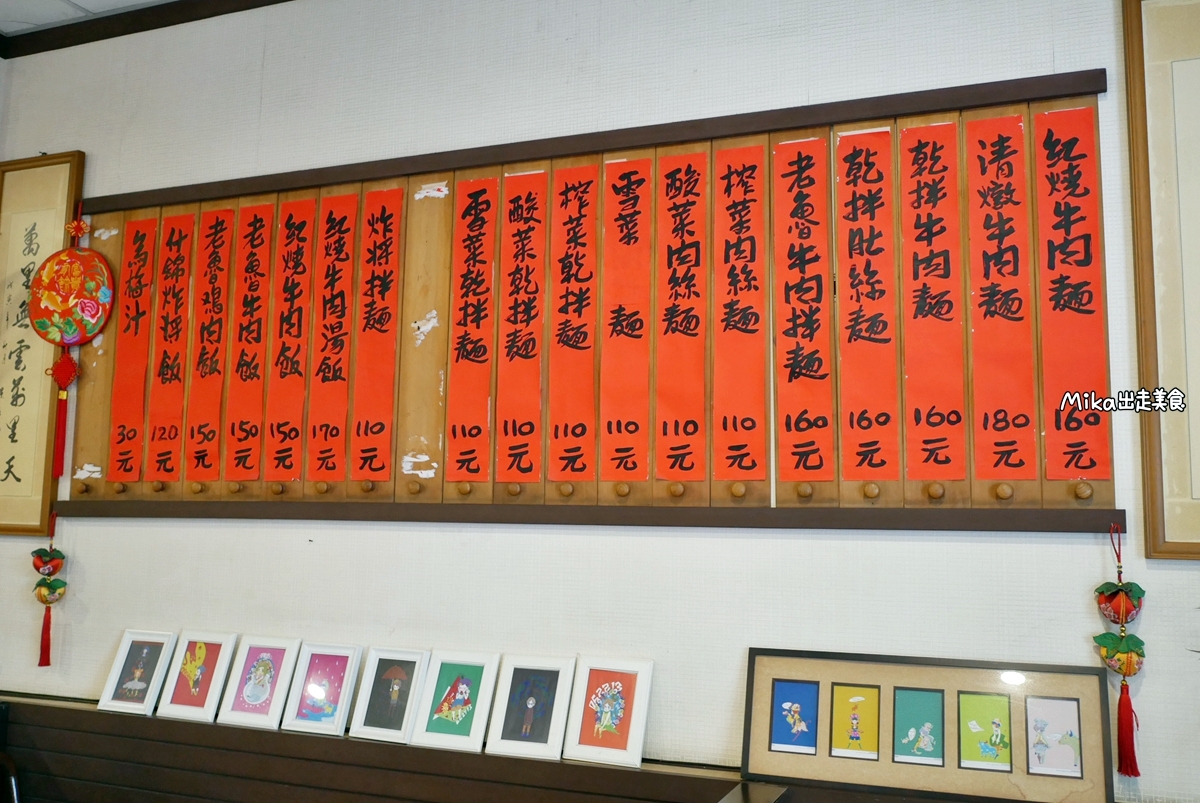 紅燒牛肉麵 160元
清燉牛肉麵 180元
乾拌牛肉麵 160元
乾拌肚絲麵 160元
老魯牛肉拌麵 160元
榨菜肉絲麵 110元
酸菜肉絲麵 110元
雪菜 麵 110元
榨菜乾拌麵 110元
酸菜乾拌麵 110元
雪菜乾拌麵 110元
炸將拌麵 110元
紅燒牛肉湯飯 170元
紅燒牛肉飯 150元
老魯牛肉飯 150元
老魯鷄肉飯 150元
什錦炸將飯 120元
烏梅汁 30元
萬里無雲萬里天
Mika出走美食